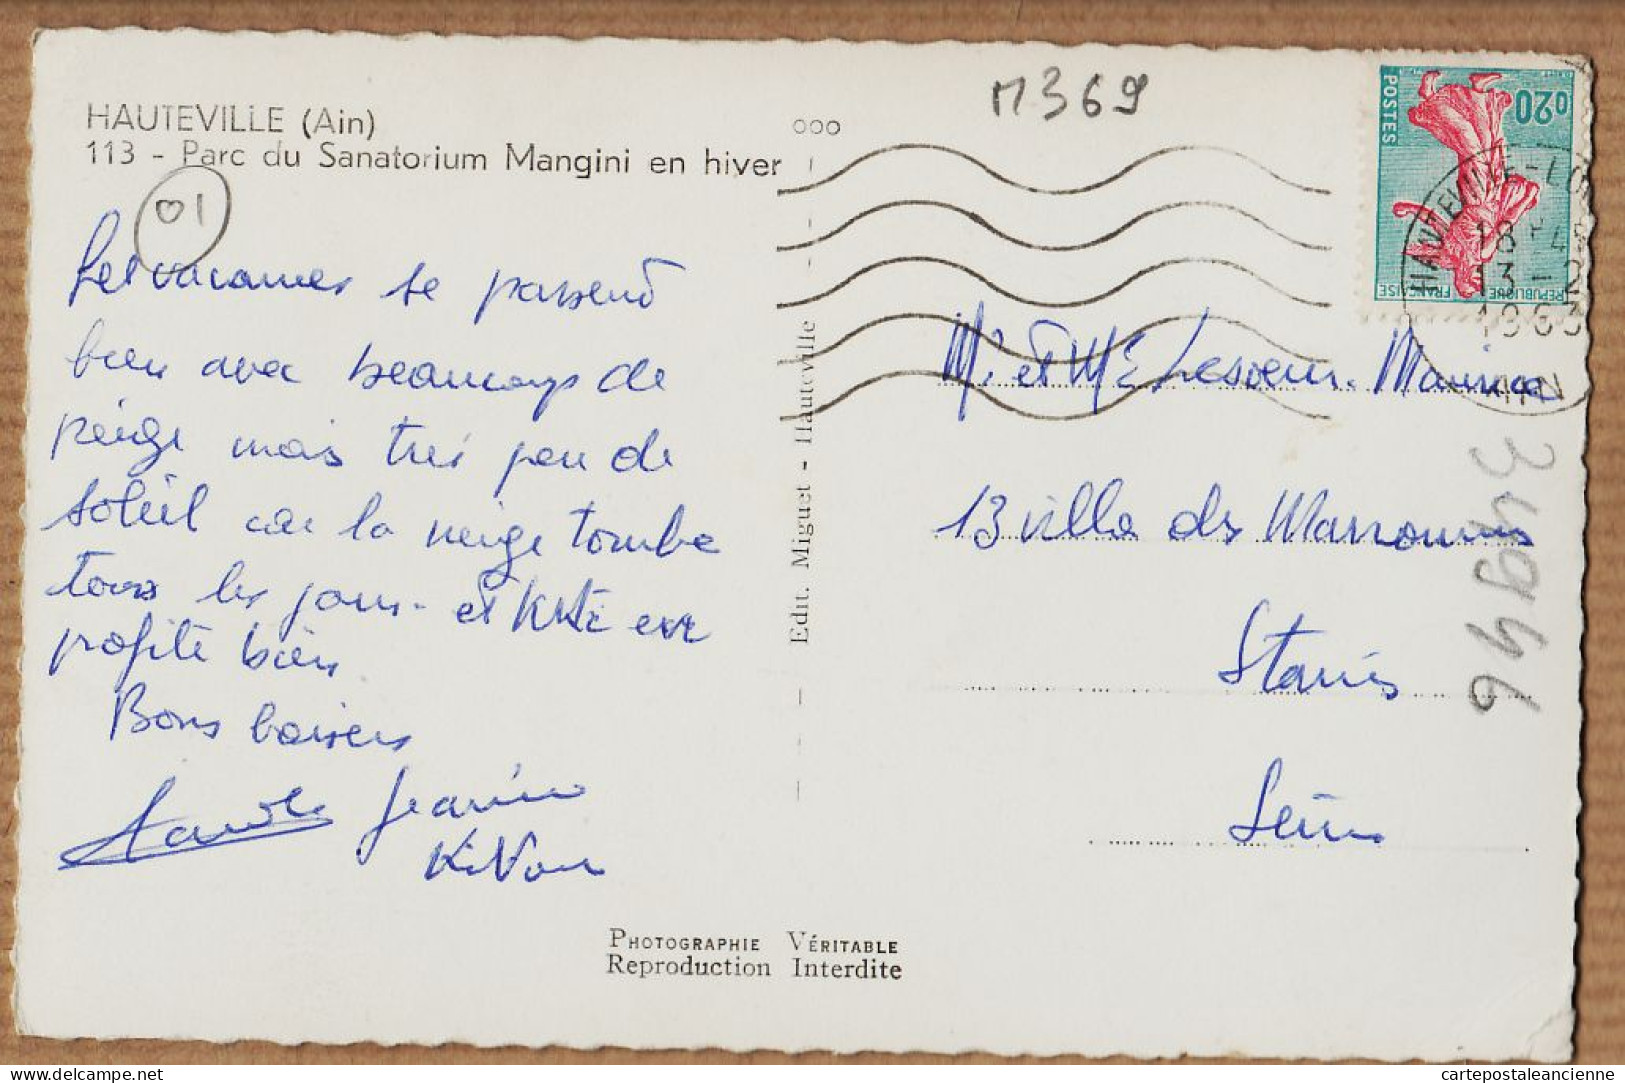 HAUTEVILLE (Ain)
113 - Parc du Sanatorium Mangini en hiver
01
Les vacances se passent
bien avec beaucoup de
neige mais très peu de
soleil car la neige tombe
tous les jours - et en
profite bien
Bons baisers
Edit. Miguet - Hauteville
PHOTOGRAPHIE VÉRITABLE
Reproduction Interdite
M369
0,20
POSTES
REPUBLIQUE FRANÇAISE
HAUTEVILLE-LO
18H 4
13-2
1963
AIN
Mr et Me Lesoeur Maurice
13 villa des Marronniers
Stains
Seine
cartepostaleancienne
www.delcampe.net